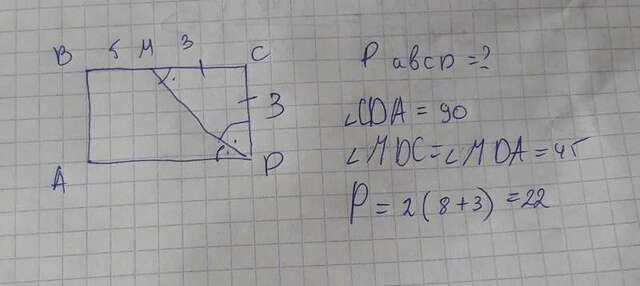 B 5 M 3 C
3
A D
P abcD = ?
∠CDA = 90
∠MDC = ∠MDA = 45
P = 2(8+3) = 22